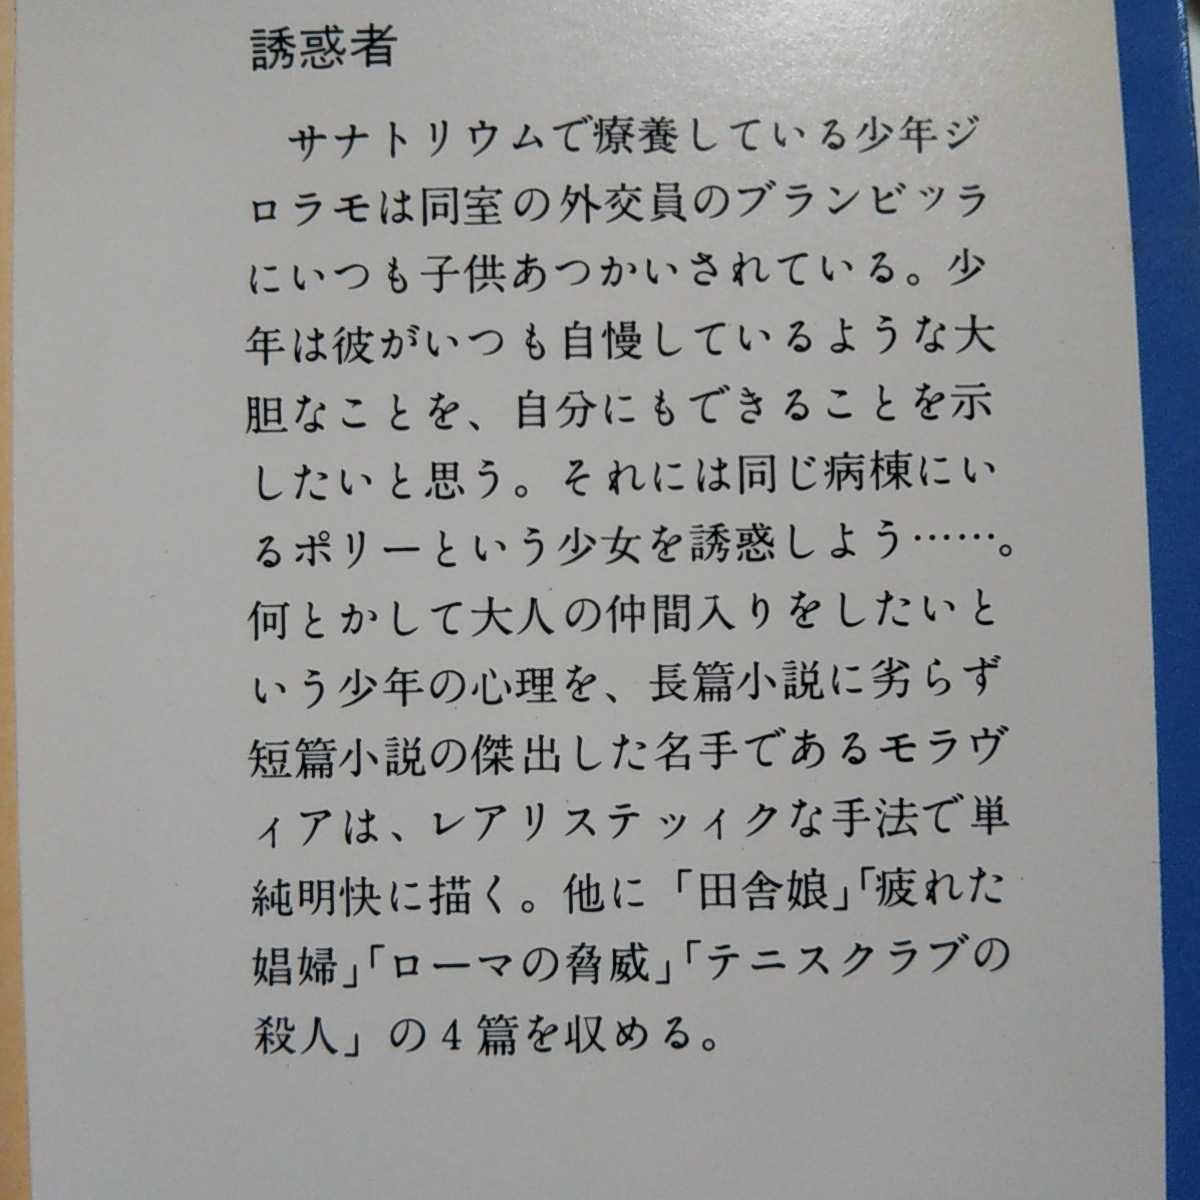 誘惑者
サナトリウムで療養している少年ジ
ロラモは同室の外交員のブランビッラ
にいつも子供あつかいされている。少
年は彼がいつも自慢しているような大
胆なことを、自分にもできることを示
したいと思う。それには同じ病棟にい
るポリーという少女を誘惑しよう……。
何とかして大人の仲間入りをしたいと
いう少年の心理を、長篇小説に劣らず
短篇小説の傑出した名手であるモラヴ
ィアは、レアリステッィクな手法で単
純明快に描く。他に「田舎娘」「疲れた
娼婦」「ローマの脅威」「テニスクラブの
殺人」の4篇を収める。